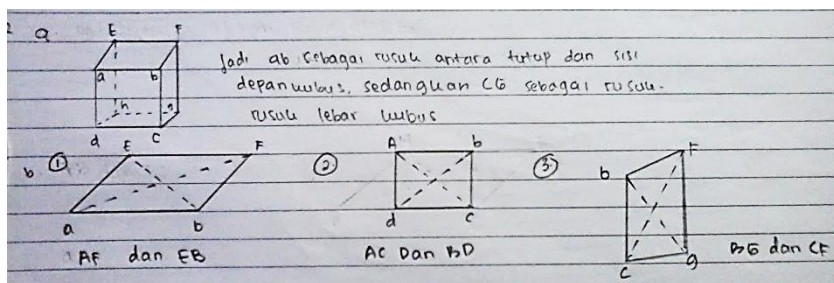 2 a. E F
a b
h g
d c
Jadi ab sebagai rusuk antara tutup dan sisi
depan kubus, sedangkan CG sebagai rusuk-
rusuk lebar kubus
b ① E F
a b
AF dan EB
② A b
d c
AC Dan BD
③ b F
c g
BG dan CF